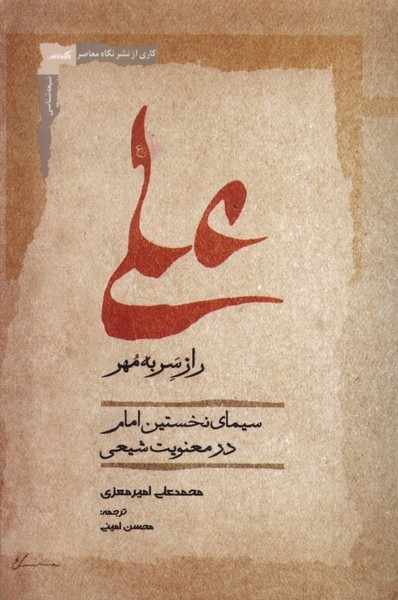 کاری از نشر نگاه معاصر
شیعه‌شناسی
علی
راز سَرِ به مُهر
سیمای نخستین امام
در معنویت شیعی
محمدعلی امیرمعزی
ترجمه:
محسن امینی